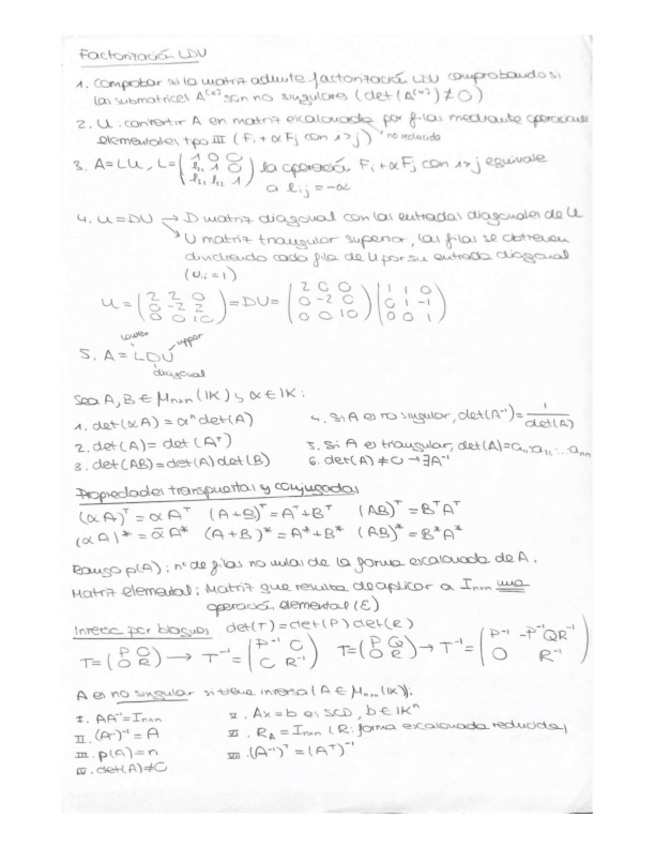 Factorización LDU
1. Comprobar si la matriz admite factorización LDU comprobando si
las submatrices A^(k) son no singulares (det(A^(k)) ≠ 0)
2. U: convertir A en matriz escalonada por filas mediante operaciones
elementales tipo III (Fi + αFj con i>j) no reducida
3. A = LU, L = (1 0 0; l21 1 0; l31 l32 1) la operación Fi + αFj con i>j equivale
a lij = -α
4. U = DU → D matriz diagonal con las entradas diagonales de U
↘ U matriz triangular superior, las filas se obtienen
dividiendo cada fila de U por su entrada diagonal
(uii = 1)
U = (2 2 0; 0 -2 2; 0 0 10) = DU = (2 0 0; 0 -2 0; 0 0 10) (1 1 0; 0 1 -1; 0 0 1)
lower upper
5. A = LDU
diagonal
Sea A, B ∈ Mnxn(IK) y α ∈ IK:
1. det(αA) = αⁿ det(A) 4. Si A es no singular, det(A⁻¹) = 1/det(A)
2. det(A) = det(Aᵀ) 5. Si A es triangular, det(A) = a11·a22·...ann
3. det(AB) = det(A) det(B) 6. det(A) ≠ 0 → ∃A⁻¹
Propiedades transpuestas y conjugadas
(αA)ᵀ = αAᵀ (A+B)ᵀ = Aᵀ+Bᵀ (AB)ᵀ = BᵀAᵀ
(αA)* = ᾱA* (A+B)* = A*+B* (AB)* = B*A*
Rango p(A): nº de filas no nulas de la forma escalonada de A.
Matriz elemental: Matriz que resulta de aplicar a Inxn una
operación elemental (E)
Inversa por bloques det(T) = det(P) det(R)
T = (P O; O R) → T⁻¹ = (P⁻¹ O; O R⁻¹) T = (P Q; O R) → T⁻¹ = (P⁻¹ -P⁻¹QR⁻¹; O R⁻¹)
A es no singular si tiene inversa (A ∈ Mnxn(IK)):
I. AA⁻¹ = Inxn V. Ax = b es SCD, b ∈ IKⁿ
II. (A⁻¹)⁻¹ = A VI. RA = Inxn (R: forma escalonada reducida)
III. p(A) = n VII. (A⁻¹)ᵀ = (Aᵀ)⁻¹
IV. det(A) ≠ 0